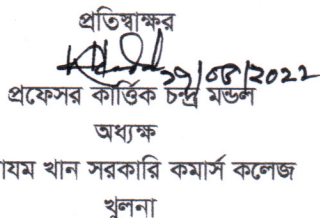 প্রতিস্বাক্ষর
29/08/2022
প্রফেসর কার্ত্তিক চন্দ্র মন্ডল
অধ্যক্ষ
যম খান সরকারি কমার্স কলেজ
খুলনা